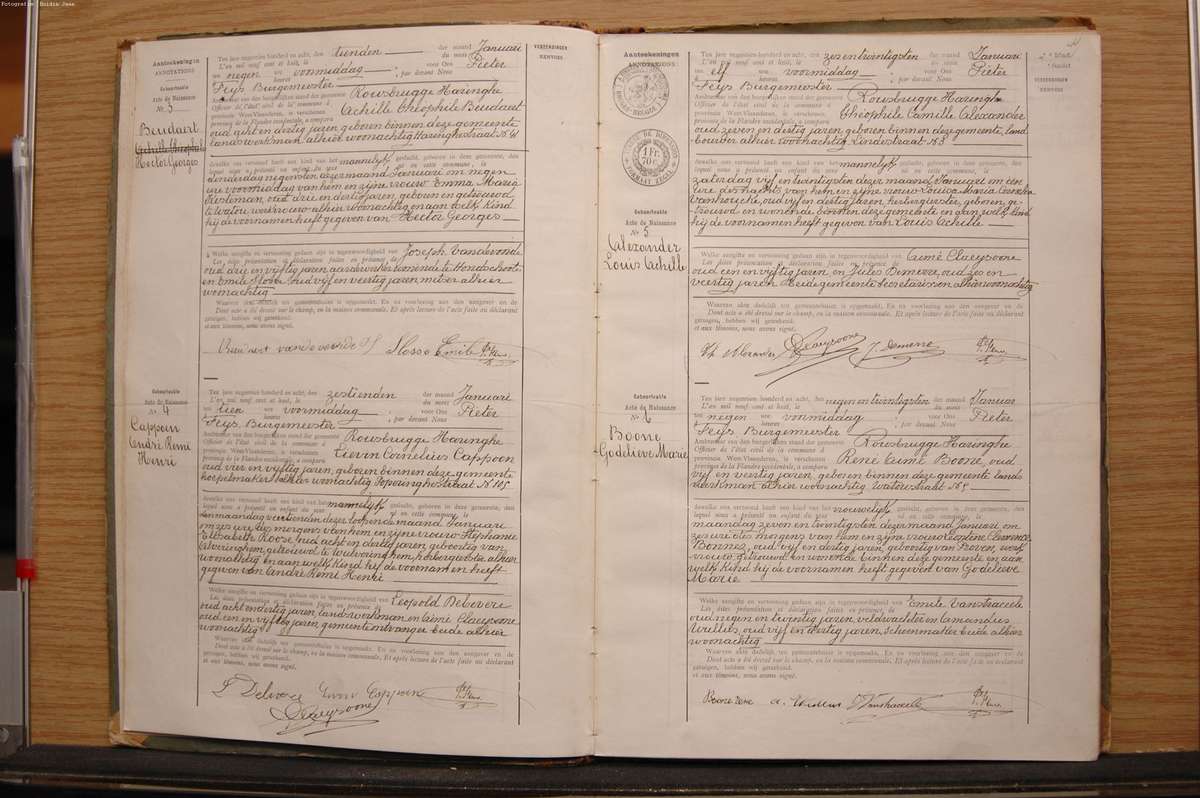 Fotografie : Guido Jaas
Aanteekeningen
ANNOTATIONS
Geboorteakte
Acte de Naissance
N° 3
Beudaert
Achille Theophiel
Hector Georges
VERZENDINGEN
RENVOIS
Ten jare negentien-honderd en acht, den tienden der maand Januari
L'an mil neuf cent et huit, le du mois
ten negen ure voormiddag voor Ons Pieter
heures , par devant Nous
Feys Burgemeester
Ambtenaar van den burgerlijken stand der gemeente Rousbrugge Haringhe
Officier de l'état civil de la commune d
provincie West-Vlaanderen, is verschenen Achille Théophile Beudaert
province de la Flandre occidentale, a comparu
oud acht en dertig jaren, geboren binnen deze gemeente
landswerkman alhier woonachtig Haringhestraat N° 41
dewelke ons vertoond heeft een kind van het mannelijk geslacht, geboren in deze gemeente, den
lequel nous a présenté un enfant du sexe né en cette commune, le
donderdag negensten dezer maand Januari om negen
ure voormiddag van hem en zijne vrouw Emma Maria
oud drie en dertig jaren, geboren en getrouwd
te Watou werkvrouw alhier woonachtig en aan welk kind
hij de voornamen heeft gegeven van Hector Georges
Welke aangifte en vertooning gedaan zijn in tegenwoordigheid van Joseph Vandevoorde
Les dites présentation et déclaration faites en présence de
oud drie en vijftig jaren, aardewerker wonende te Hondschoote
en Emile Slosse oud vijf en veertig jaren metser alhier
woonachtig
Waarvan akte dadelijk ten gemeentehuize is opgemaakt. En na voorlezing aan den aangever en de
Dont acte a été dressé sur le champ, en la maison communale. Et après lecture de l'acte faite au déclarant
getuigen, hebben wij geteekend.
et aux témoins, nous avons signé.
Beudaert vandevoorde J Slosse Emile P. Feys
Geboorteakte
Acte de Naissance
N° 4
Cappoen
André Remi
Henri
Ten jare negentien-honderd en acht, den zestienden der maand Januari
L'an mil neuf cent et huit, le du mois
ten tien ure voormiddag voor Ons Pieter
heures , par devant Nous
Feys Burgemeester
Ambtenaar van den burgerlijken stand der gemeente Rousbrugge Haringhe
Officier de l'état civil de la commune d
provincie West-Vlaanderen, is verschenen Lievin Cornelius Cappoen
province de la Flandre occidentale, a comparu
oud vier en vijftig jaren, geboren binnen deze gemeente
alhier woonachtig Poperinghestraat N° 105
dewelke ons vertoond heeft een kind van het mannelijk geslacht, geboren in deze gemeente, den
lequel nous a présenté un enfant du sexe né en cette commune, le
dezer loopende maand Januari
om zes ure des morgens van hem en zijne vrouw Stephanie
Elisabeth Roose oud acht en dertig jaren, geboortig van
Elverdinghe, getrouwd te Wulveringhem, herbergierster alhier
woonachtig en aan welk kind hij de voornamen heeft
gegeven van André Remi Henri
Welke aangifte en vertooning gedaan zijn in tegenwoordigheid van Leopold Delvoere
Les dites présentation et déclaration faites en présence de
oud acht en dertig jaren, landswerkman en Aimé Claeysoone
oud een en vijftig jaren gemeentontvanger beide alhier
woonachtig
Waarvan akte dadelijk ten gemeentehuize is opgemaakt. En na voorlezing aan den aangever en de
Dont acte a été dressé sur le champ, en la maison communale. Et après lecture de l'acte faite au déclarant
getuigen, hebben wij geteekend.
et aux témoins, nous avons signé.
L Delvoere Cappoen P. Feys
Claeysoone
Aanteekeningen
ANNOTATIONS
1 Fr.
70 c.
Geboorteakte
Acte de Naissance
N° 5
Alexander
Louis Achille
VERZENDINGEN
RENVOIS
Ten jare negentien-honderd en acht, den zes en twintigsten der maand Januari
L'an mil neuf cent et huit, le du mois
ten elf ure voormiddag voor Ons Pieter
heures , par devant Nous
Feys Burgemeester
Ambtenaar van den burgerlijken stand der gemeente Rousbrugge Haringhe
Officier de l'état civil de la commune d
provincie West-Vlaanderen, is verschenen Théophile Camille Alexander
province de la Flandre occidentale, a comparu
oud zeven en dertig jaren, geboren binnen deze gemeente, land
bouwer alhier woonachtig Lindestraat N° 3
dewelke ons vertoond heeft een kind van het mannelijk geslacht, geboren in deze gemeente, den
lequel nous a présenté un enfant du sexe né en cette commune, le
zaterdag vijf en twintigsten dezer maand Januari om een
ure des nachts van hem en zijne vrouw Louisa Maria Cornelia
oud vijf en dertig jaren, herbergierster, geboren, ge-
trouwd en wonende binnen deze gemeente en aan welk kind
hij de voornamen heeft gegeven van Louis Achille
Welke aangifte en vertooning gedaan zijn in tegenwoordigheid van Aimé Claeysoone
Les dites présentation et déclaration faites en présence de
oud een en vijftig jaren, en Jules Demerre, oud zes en
veertig jaren beide gemeentesecretarissen alhier woonachtig
Waarvan akte dadelijk ten gemeentehuize is opgemaakt. En na voorlezing aan den aangever en de
Dont acte a été dressé sur le champ, en la maison communale. Et après lecture de l'acte faite au déclarant
getuigen, hebben wij geteekend.
et aux témoins, nous avons signé.
Th Alexander Claeysoone J. Demerre P. Feys
Geboorteakte
Acte de Naissance
N° 6
Boone
Godelieve Marie
Ten jare negentien-honderd en acht, den negen en twintigsten der maand Januari
L'an mil neuf cent et huit, le du mois
ten negen ure voormiddag voor Ons Pieter
heures , par devant Nous
Feys Burgemeester
Ambtenaar van den burgerlijken stand der gemeente Rousbrugge Haringhe
Officier de l'état civil de la commune d
provincie West-Vlaanderen, is verschenen René Aimé Boone, oud
province de la Flandre occidentale, a comparu
vijf en veertig jaren, geboren binnen deze gemeente lands
werkman alhier woonachtig Watoustraat N° 5
dewelke ons vertoond heeft een kind van het vrouwelijk geslacht, geboren in deze gemeente, den
lequel nous a présenté un enfant du sexe né en cette commune, le
maandag zeven en twintigsten dezer maand Januari om
zes ure des morgens van hem en zijne vrouw Leontine Clemence
Bonnez, oud vijf en dertig jaren, geboortig van Proven, werk
vrouw, getrouwd en wonende binnen deze gemeente en aan
welk kind hij de voornamen heeft gegeven van Godelieve
Marie
Welke aangifte en vertooning gedaan zijn in tegenwoordigheid van Emile Vanstraceele
Les dites présentation et déclaration faites en présence de
oud negen en twintig jaren, veldwachter en Amandus
Willius, oud vijf en dertig jaren, schoenmaker beide alhier
woonachtig
Waarvan akte dadelijk ten gemeentehuize is opgemaakt. En na voorlezing aan den aangever en de
Dont acte a été dressé sur le champ, en la maison communale. Et après lecture de l'acte faite au déclarant
getuigen, hebben wij geteekend.
et aux témoins, nous avons signé.
Boone Rene A. Willius E Vanstraceele P. Feys